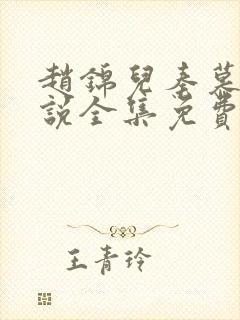 趙錦兒秦慕
說全集免費
王青玲